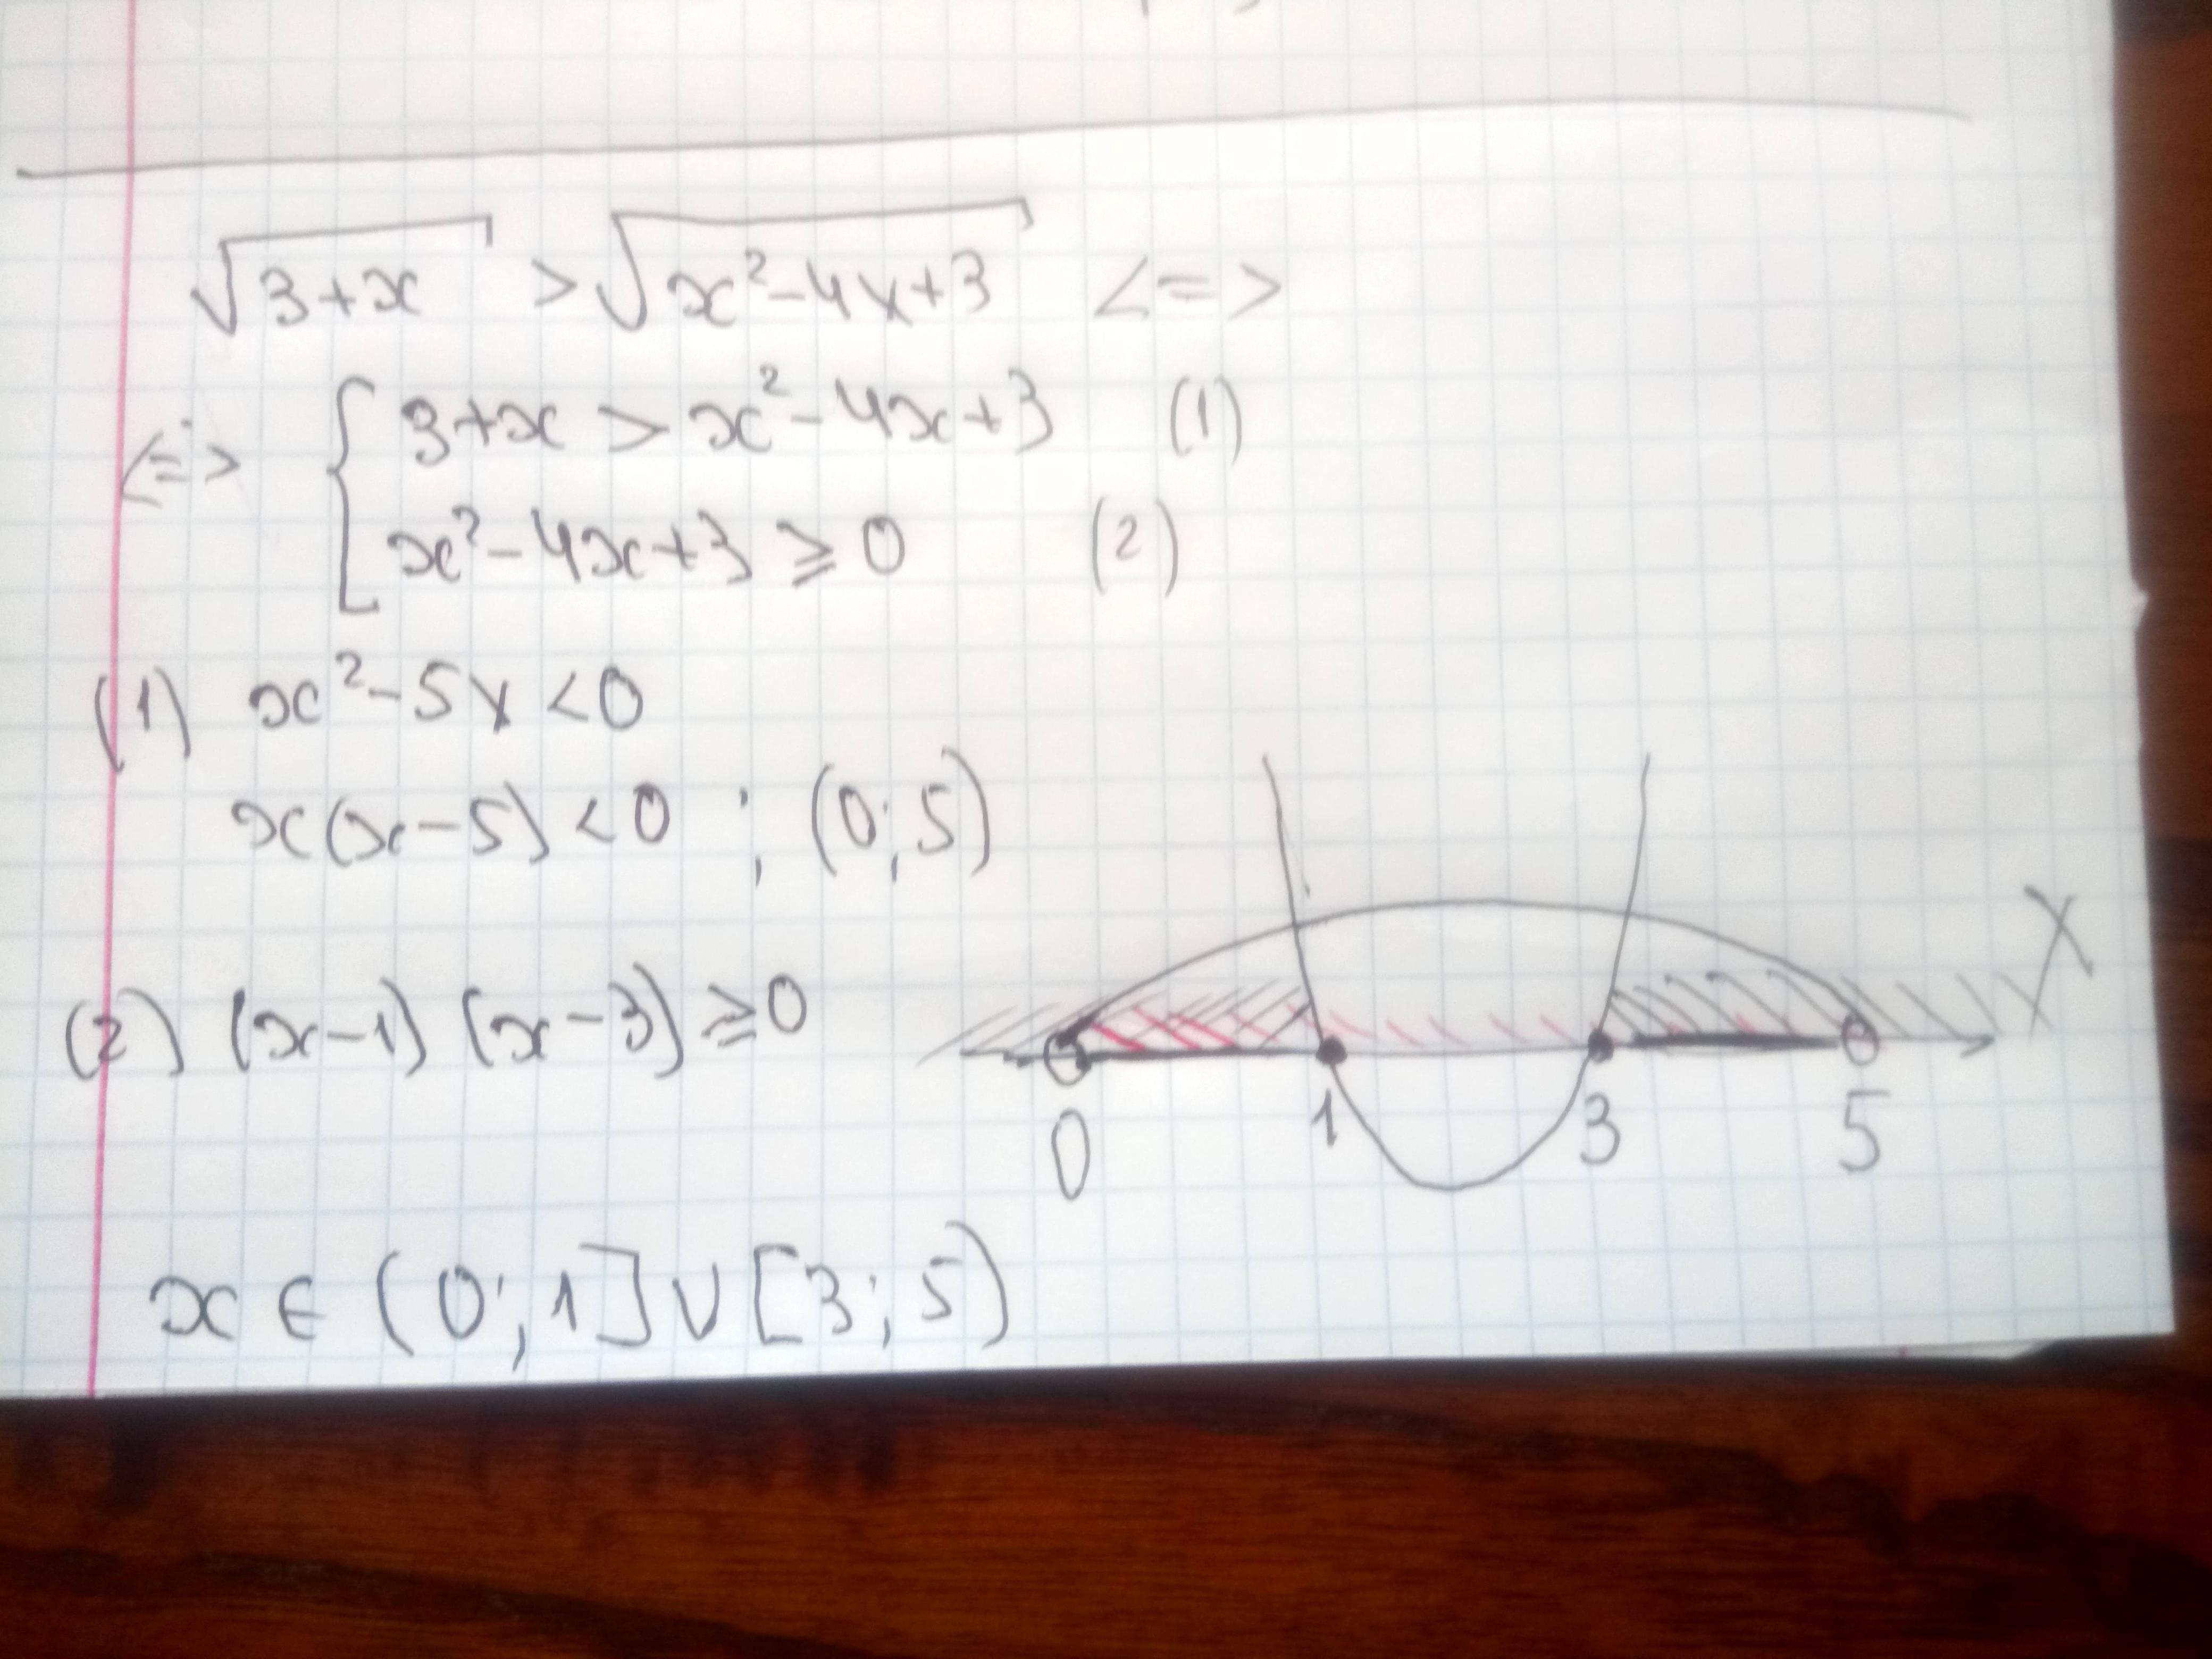 √(3+x) > √(x²-4x+3) <=>
<=> { 3+x > x²-4x+3 (1)
x²-4x+3 ⩾ 0 (2)
(1) x²-5x<0
x(x-5)<0 ; (0;5)
(2) (x-1)(x-3)⩾0
X
0 1 3 5
x∈(0;1]∪[3;5)